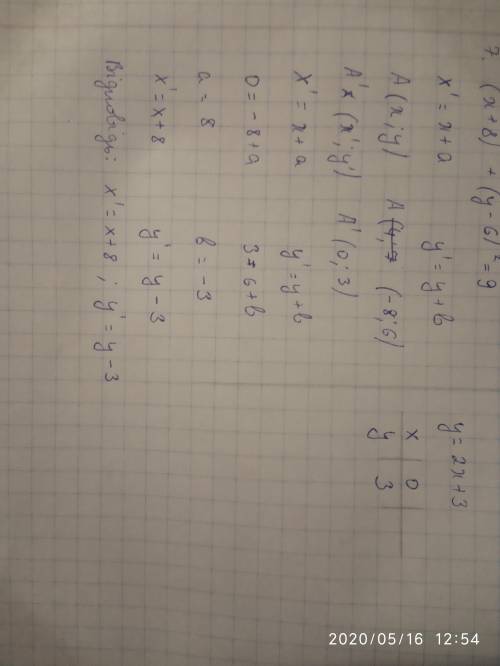 7. (x+8) + (y-6)² = 9
x' = x + a   y' = y + b   y = 2x+3
A (x; y)   A (-8; 6)   x | 0
A' (x'; y')   A' (0; 3)   y | 3
x' = x + a   y' = y + b
0 = -8 + a   3 = 6 + b
a = 8   b = -3
x' = x + 8   y' = y - 3
Відповідь: x' = x + 8 ; y' = y - 3
2020/05/16 12:54